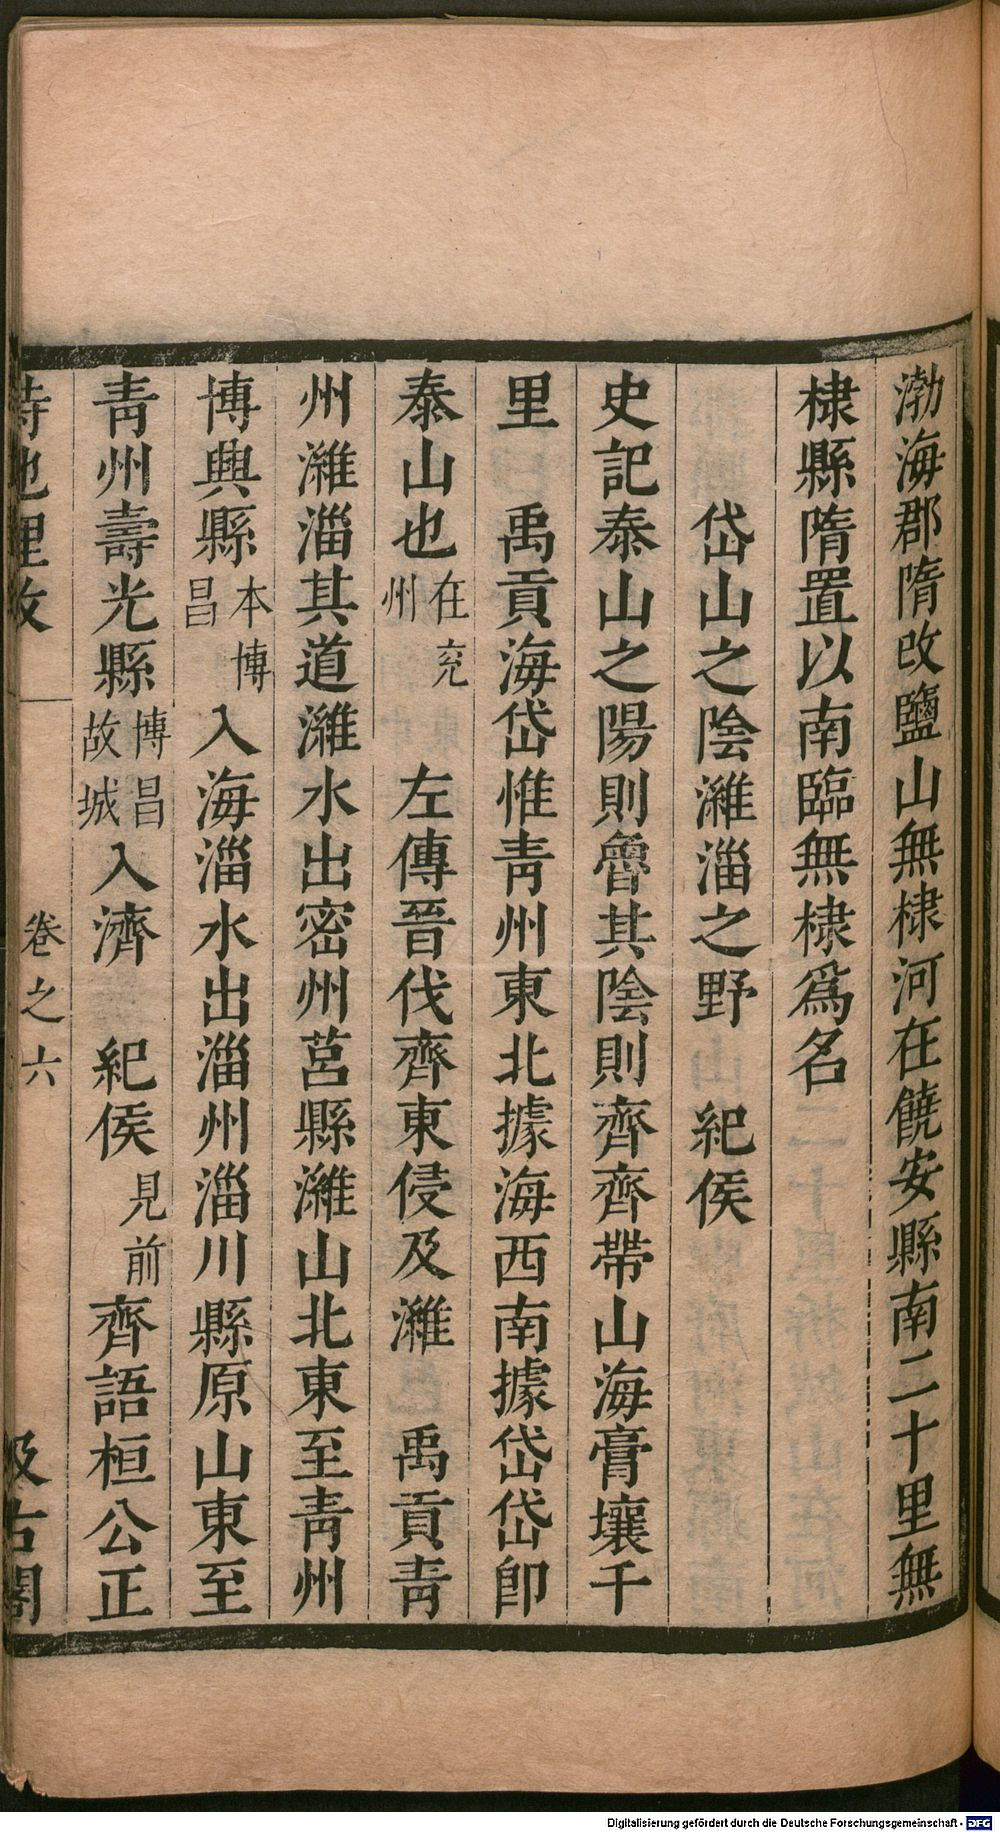 渤海郡隋改鹽山無棣河在饒安縣南二十里無
棣縣隋置以南臨無棣爲名
岱山之隂濰淄之野　紀侯
史記泰山之陽則魯其隂則齊齊帶山海膏壤千
里　禹貢海岱惟靑州東北據海西南據岱岱卽
泰山也在兖州　左傳晉伐齊東侵及濰　禹貢靑
州濰淄其道濰水出密州莒縣濰山北東至靑州
博興縣本博昌入海淄水出淄州淄川縣原山東至
靑州壽光縣博昌故城入濟　紀侯見前齊語桓公正
詩地理攷　卷之六　汲古閣
Digitalisierung gefördert durch die Deutsche Forschungsgemeinschaft - DFG